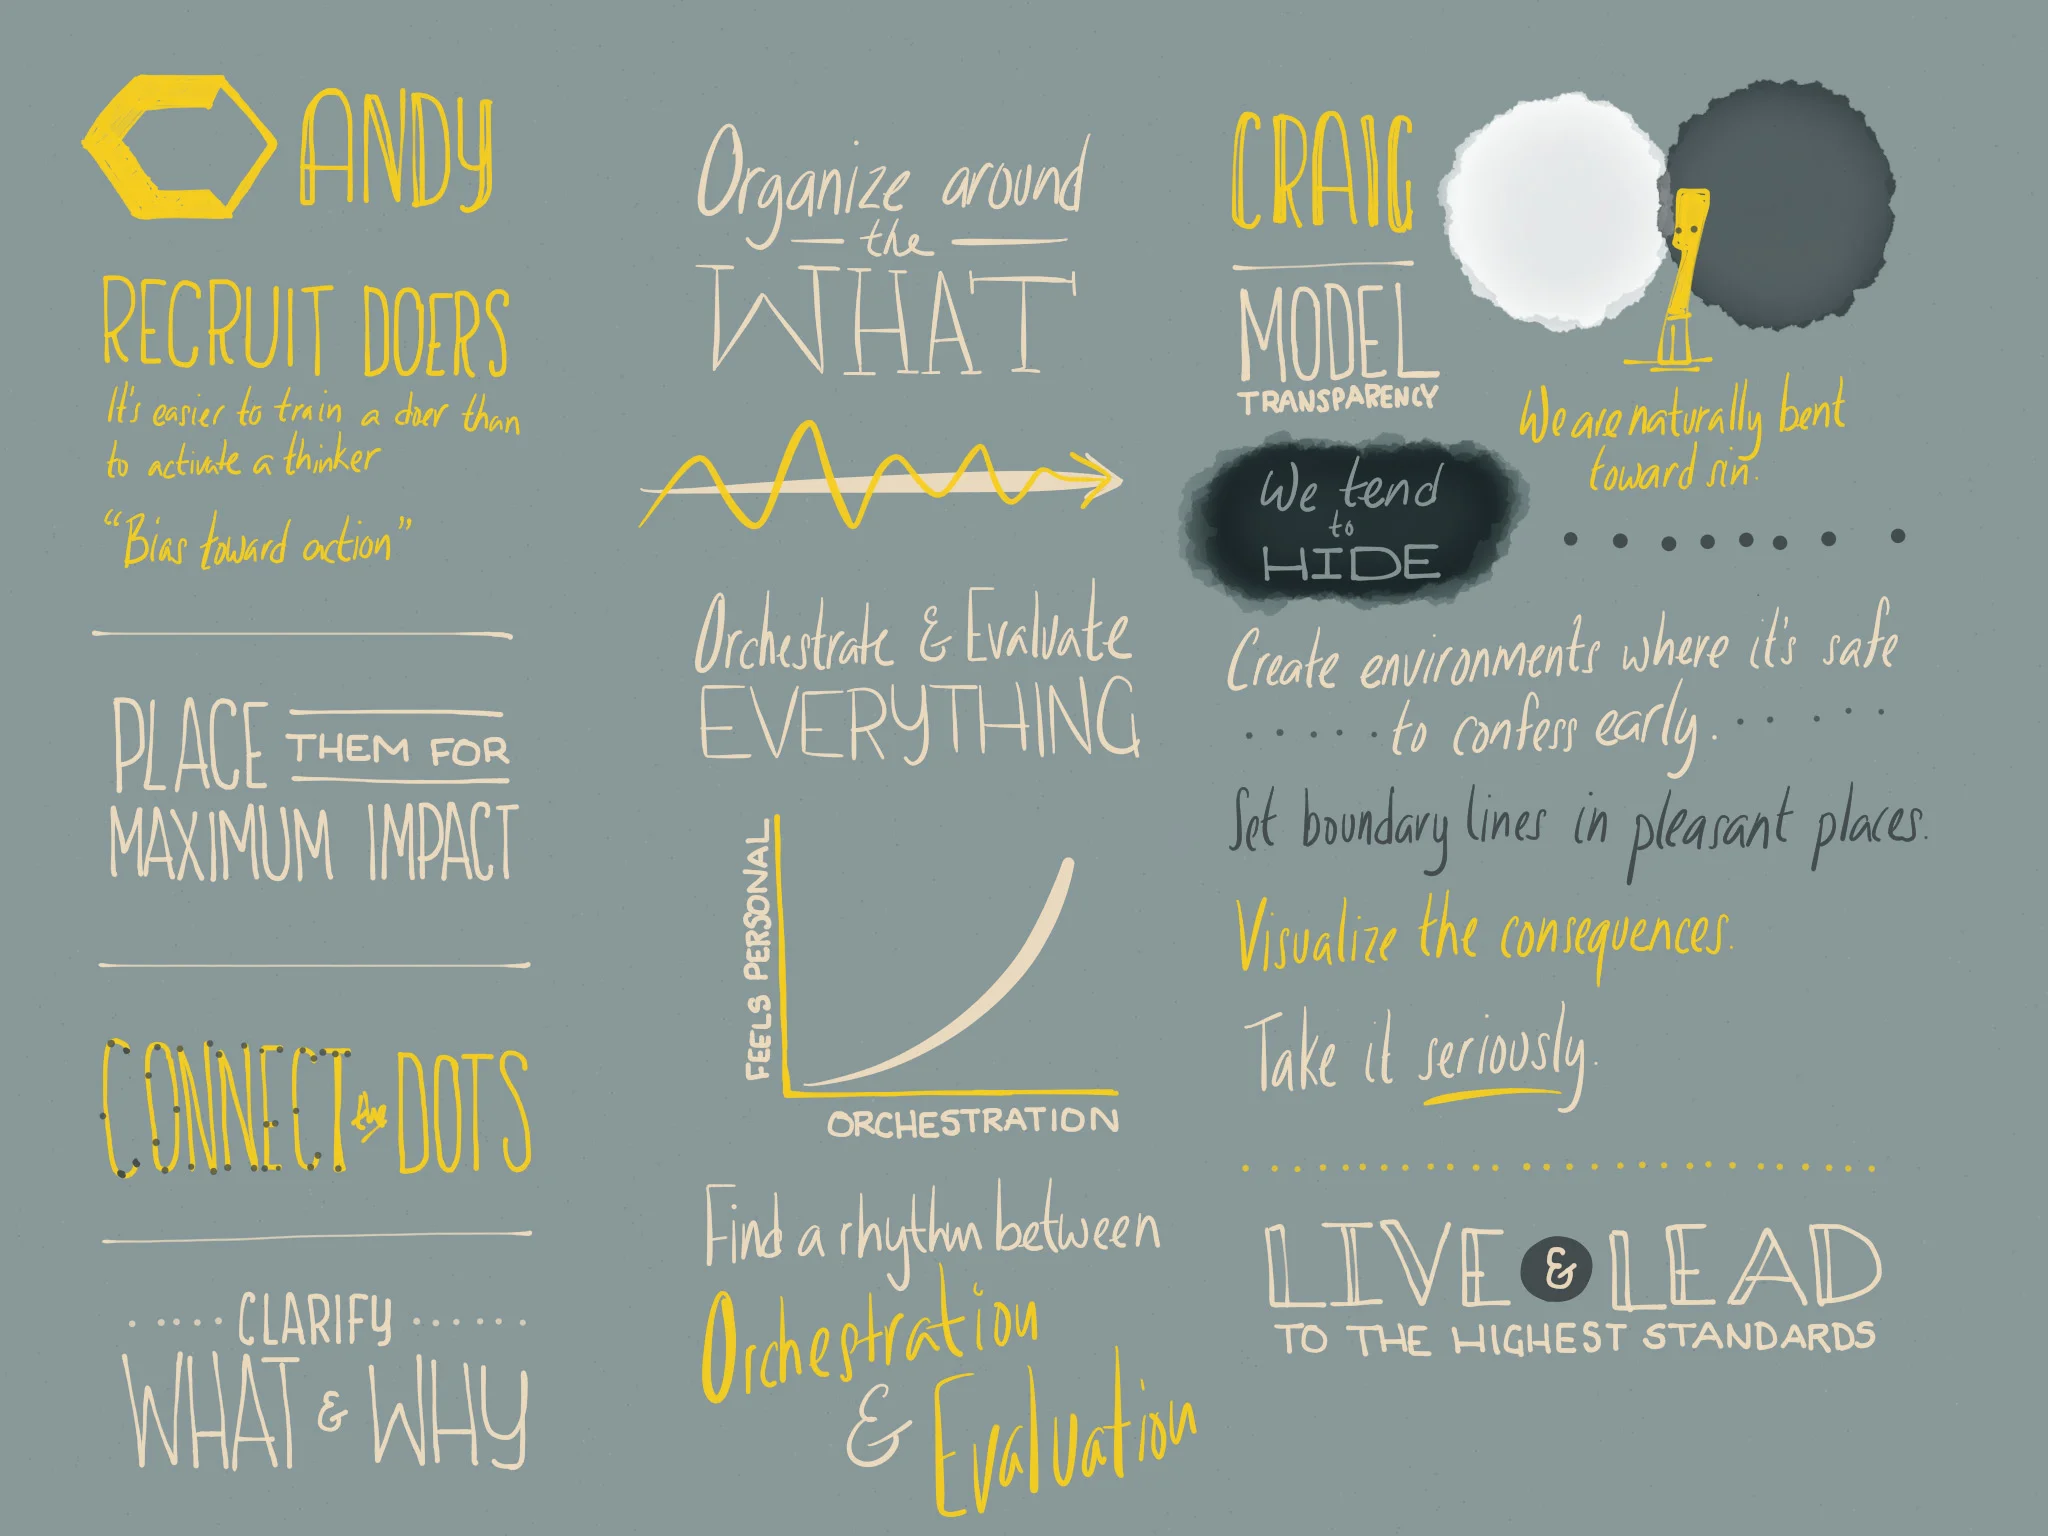 ANDY
RECRUIT DOERS
It's easier to train a doer than
to activate a thinker
"Bias toward action"
PLACE THEM FOR
MAXIMUM IMPACT
CONNECT the DOTS
CLARIFY
WHAT & WHY
Organize around
the
WHAT
Orchestrate & Evaluate
EVERYTHING
FEELS PERSONAL
ORCHESTRATION
Find a rhythm between
Orchestration
& Evaluation
CRAIG
MODEL
TRANSPARENCY
We are naturally bent
toward sin.
We tend
to
HIDE
Create environments where it's safe
to confess early.
Set boundary lines in pleasant places.
Visualize the consequences.
Take it seriously.
LIVE & LEAD
TO THE HIGHEST STANDARDS